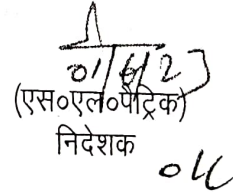 01/6/23
(एस०एल०पैट्रिक)
निदेशक